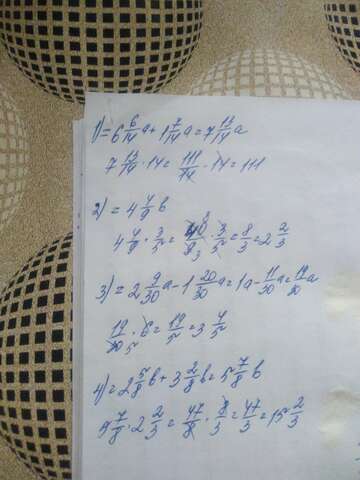 1) = 6 6/14 a + 1 7/14 a = 7 13/14 a
7 13/14 · 14 = 111/14 · 14 = 111
2) = 4 4/9 b
4 4/9 · 3/5 = 40/9 · 3/5 = 8/3 = 2 2/3
3) = 2 9/30 a - 1 20/30 a = 1a - 11/30 a = 19/30 a
19/30 · 6 = 19/5 = 3 4/5
4) = 2 5/8 b + 3 2/8 b = 5 7/8 b
5 7/8 · 2 2/3 = 47/8 · 8/3 = 47/3 = 15 2/3